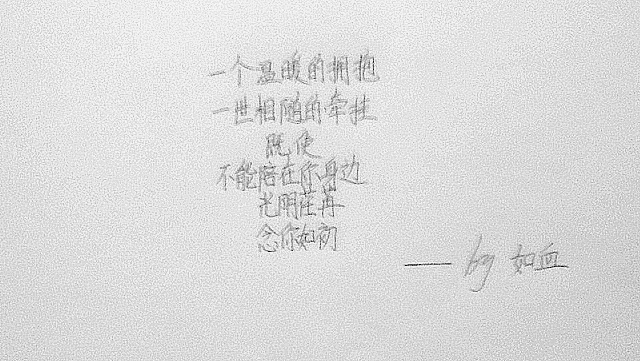 一个温暖的拥抱
一世相随的牵挂
既使
不能陪在你身边
光明茬苒
念你如初
—— by 如血